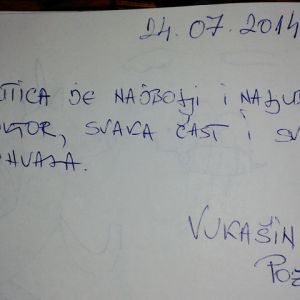 24.07.2014
UTICA JE NAJBOLJI I NAJLJUB
KTOR, SVAKA ČAST I SV
HVALA.
VUKAŠIN
POZ